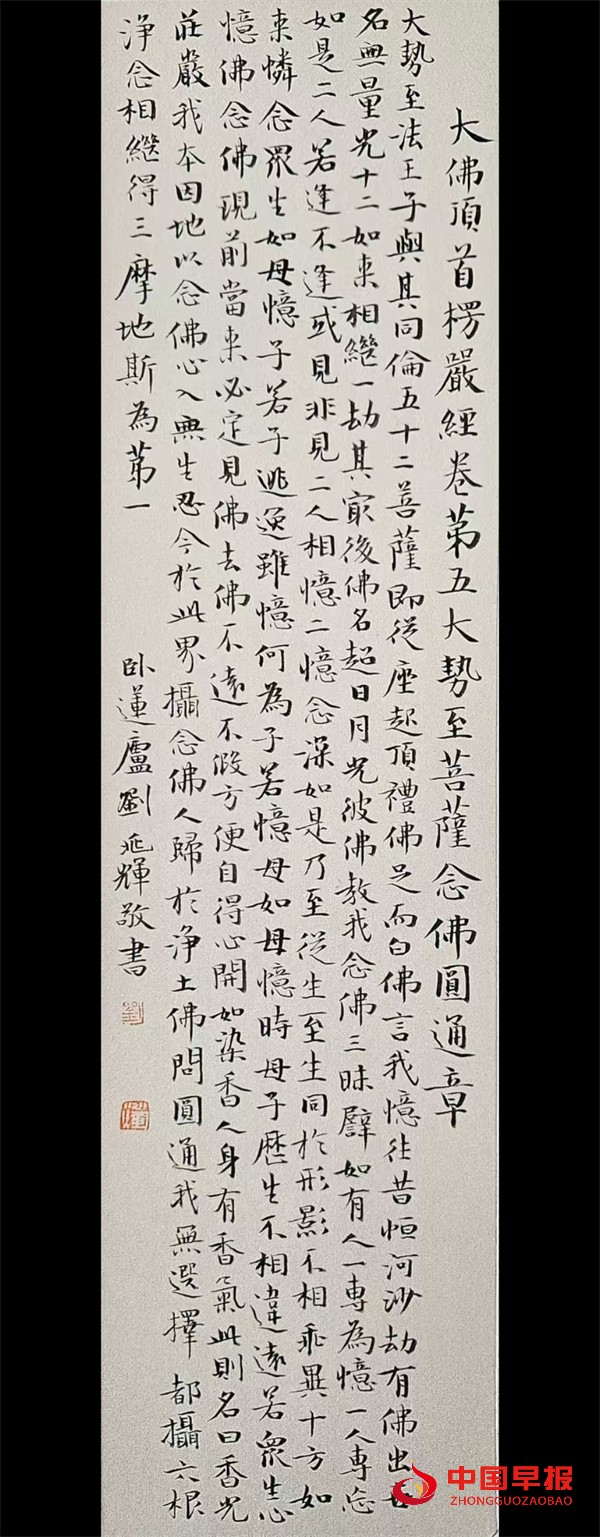 大佛頂首楞嚴經卷第五大勢至菩薩念佛圓通章
大勢至法王子與其同倫五十二菩薩即從座起頂禮佛足而白佛言我憶往昔恒河沙劫有佛出世
名無量光十二如来相繼一劫其冣後佛名超日月光彼佛教我念佛三昧譬如有人一專為憶一人專忘
如是二人若逢不逢或見非見二人相憶二憶念深如是乃至從生至生同於形影不相乖異十方如
来憐念眾生如母憶子若子逃逝雖憶何為子若憶母如母憶時母子歷生不相違遠若眾生心
憶佛念佛現前當来必定見佛去佛不遠不假方便自得心開如染香人身有香氣此則名曰香光
莊嚴我本因地以念佛心入無生忍今於此界攝念佛人歸於浄土佛問圓通我無選擇都攝六根
浄念相繼得三摩地斯為第一
卧蓮廬劉延輝敬書
劉
中国早报
ZHONGGUOZAOBAO